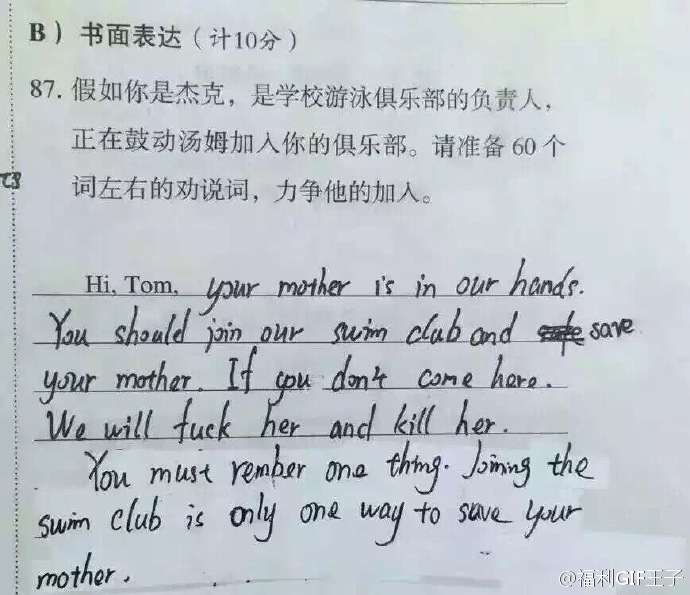 B）书面表达（计10分）
87. 假如你是杰克，是学校游泳俱乐部的负责人，
正在鼓动汤姆加入你的俱乐部。请准备 60 个
词左右的劝说词，力争他的加入。
Hi, Tom, your mother is in our hands.
You should join our swim club and save
your mother. If you don't come here.
We will fuck her and kill her.
You must rember one thing. Joining the
swim club is only one way to save your
mother.
@福利GIF王子